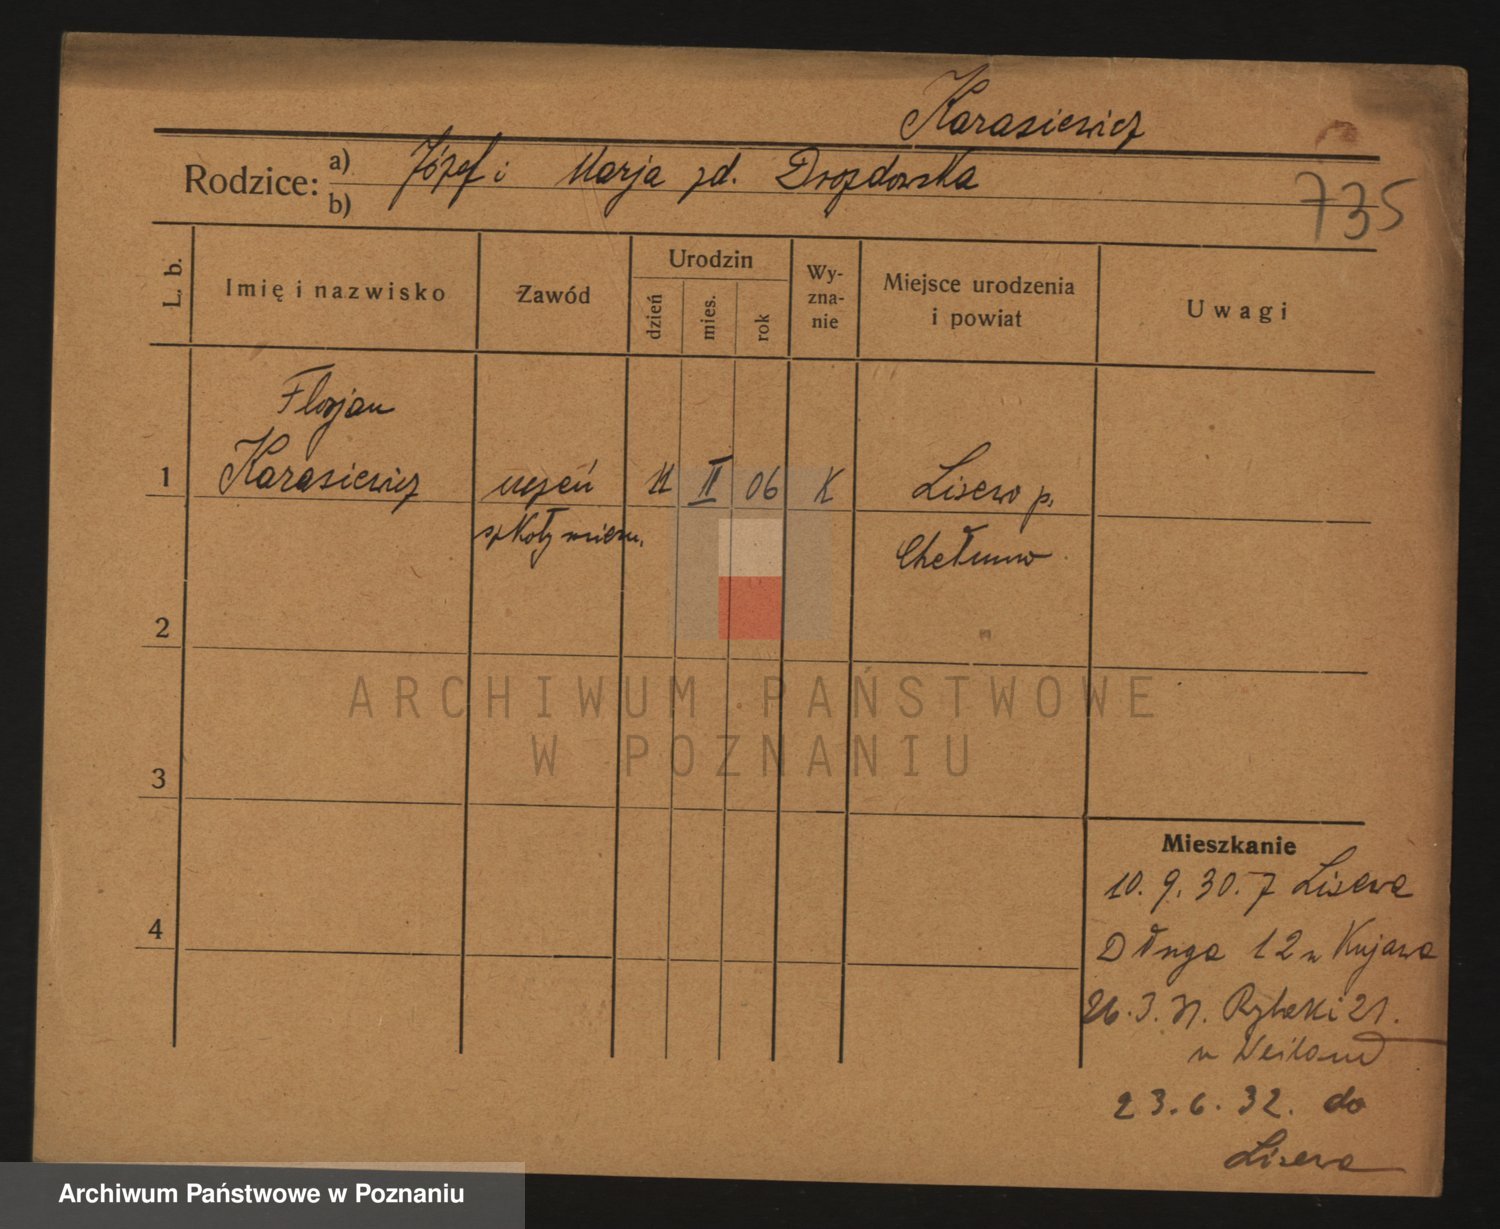 Karasiewicz
Rodzice: a) Józef i Marja zd. Drozdowska
b)
735
L. b. Imię i nazwisko Zawód Urodzin dzień mies. rok Wy-zna-nie Miejsce urodzenia i powiat Uwagi
Florjan
1 Karasiewicz uczeń II 06 K Lisewo p.
szkoły Chełmno
2
ARCHIWUM PAŃSTWOWE
W POZNANIU
3
Mieszkanie
10. 9. 30. z Lisewa
4
Długa 12 u Kujawa
26. 3. 31. Rybaki 21.
u Weiland
23. 6. 32. do
Lisewa
Archiwum Państwowe w Poznaniu